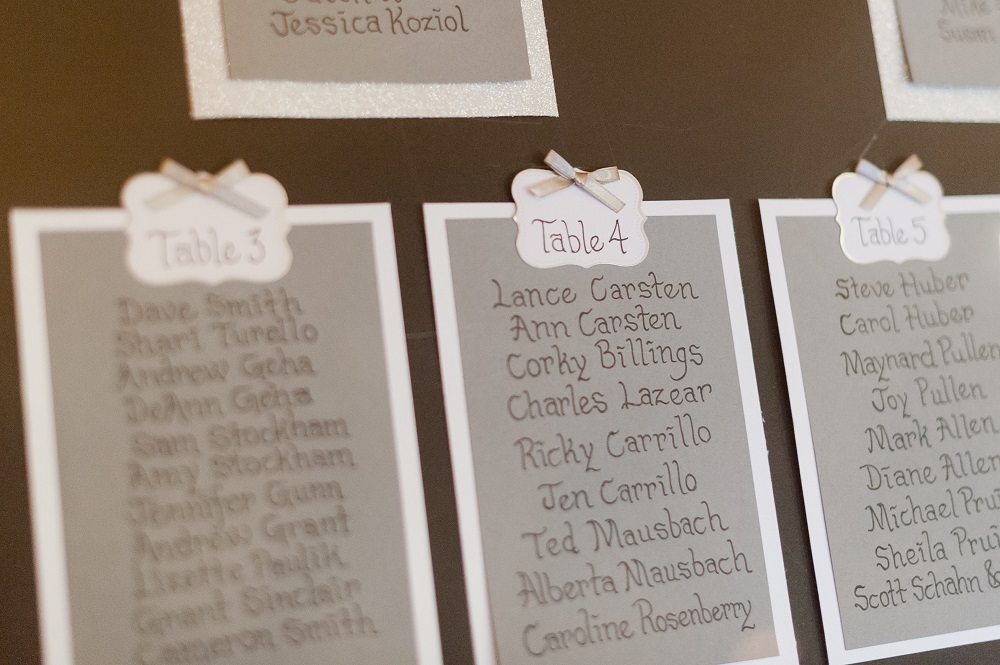 Jessica Koziol
Mike
Susan
Table 3
Dave Smith
Shari Turello
Andrew Geha
DeAnn Geha
Sam Stockham
Amy Stockham
Jennifer Gunn
Andrew Grant
Lizette Paulik
Grant Sinclair
Cameron Smith
Table 4
Lance Carsten
Ann Carsten
Corky Billings
Charles Lazear
Ricky Carrillo
Jen Carrillo
Ted Mausbach
Alberta Mausbach
Caroline Rosenberry
Table 5
Steve Huber
Carol Huber
Maynard Pullen
Joy Pullen
Mark Allen
Diane Allen
Michael Prui
Sheila Prui
Scott Schahn &